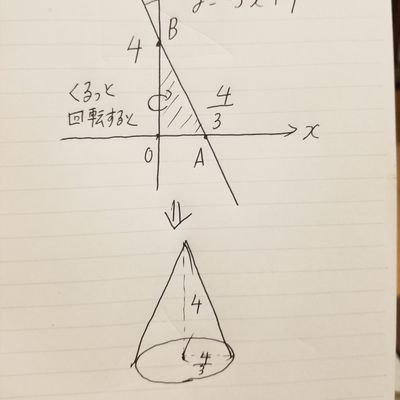 y=-3x+4
B
4
くるっと
回転すると
4/3
x
O
A
⇓
4
4/3